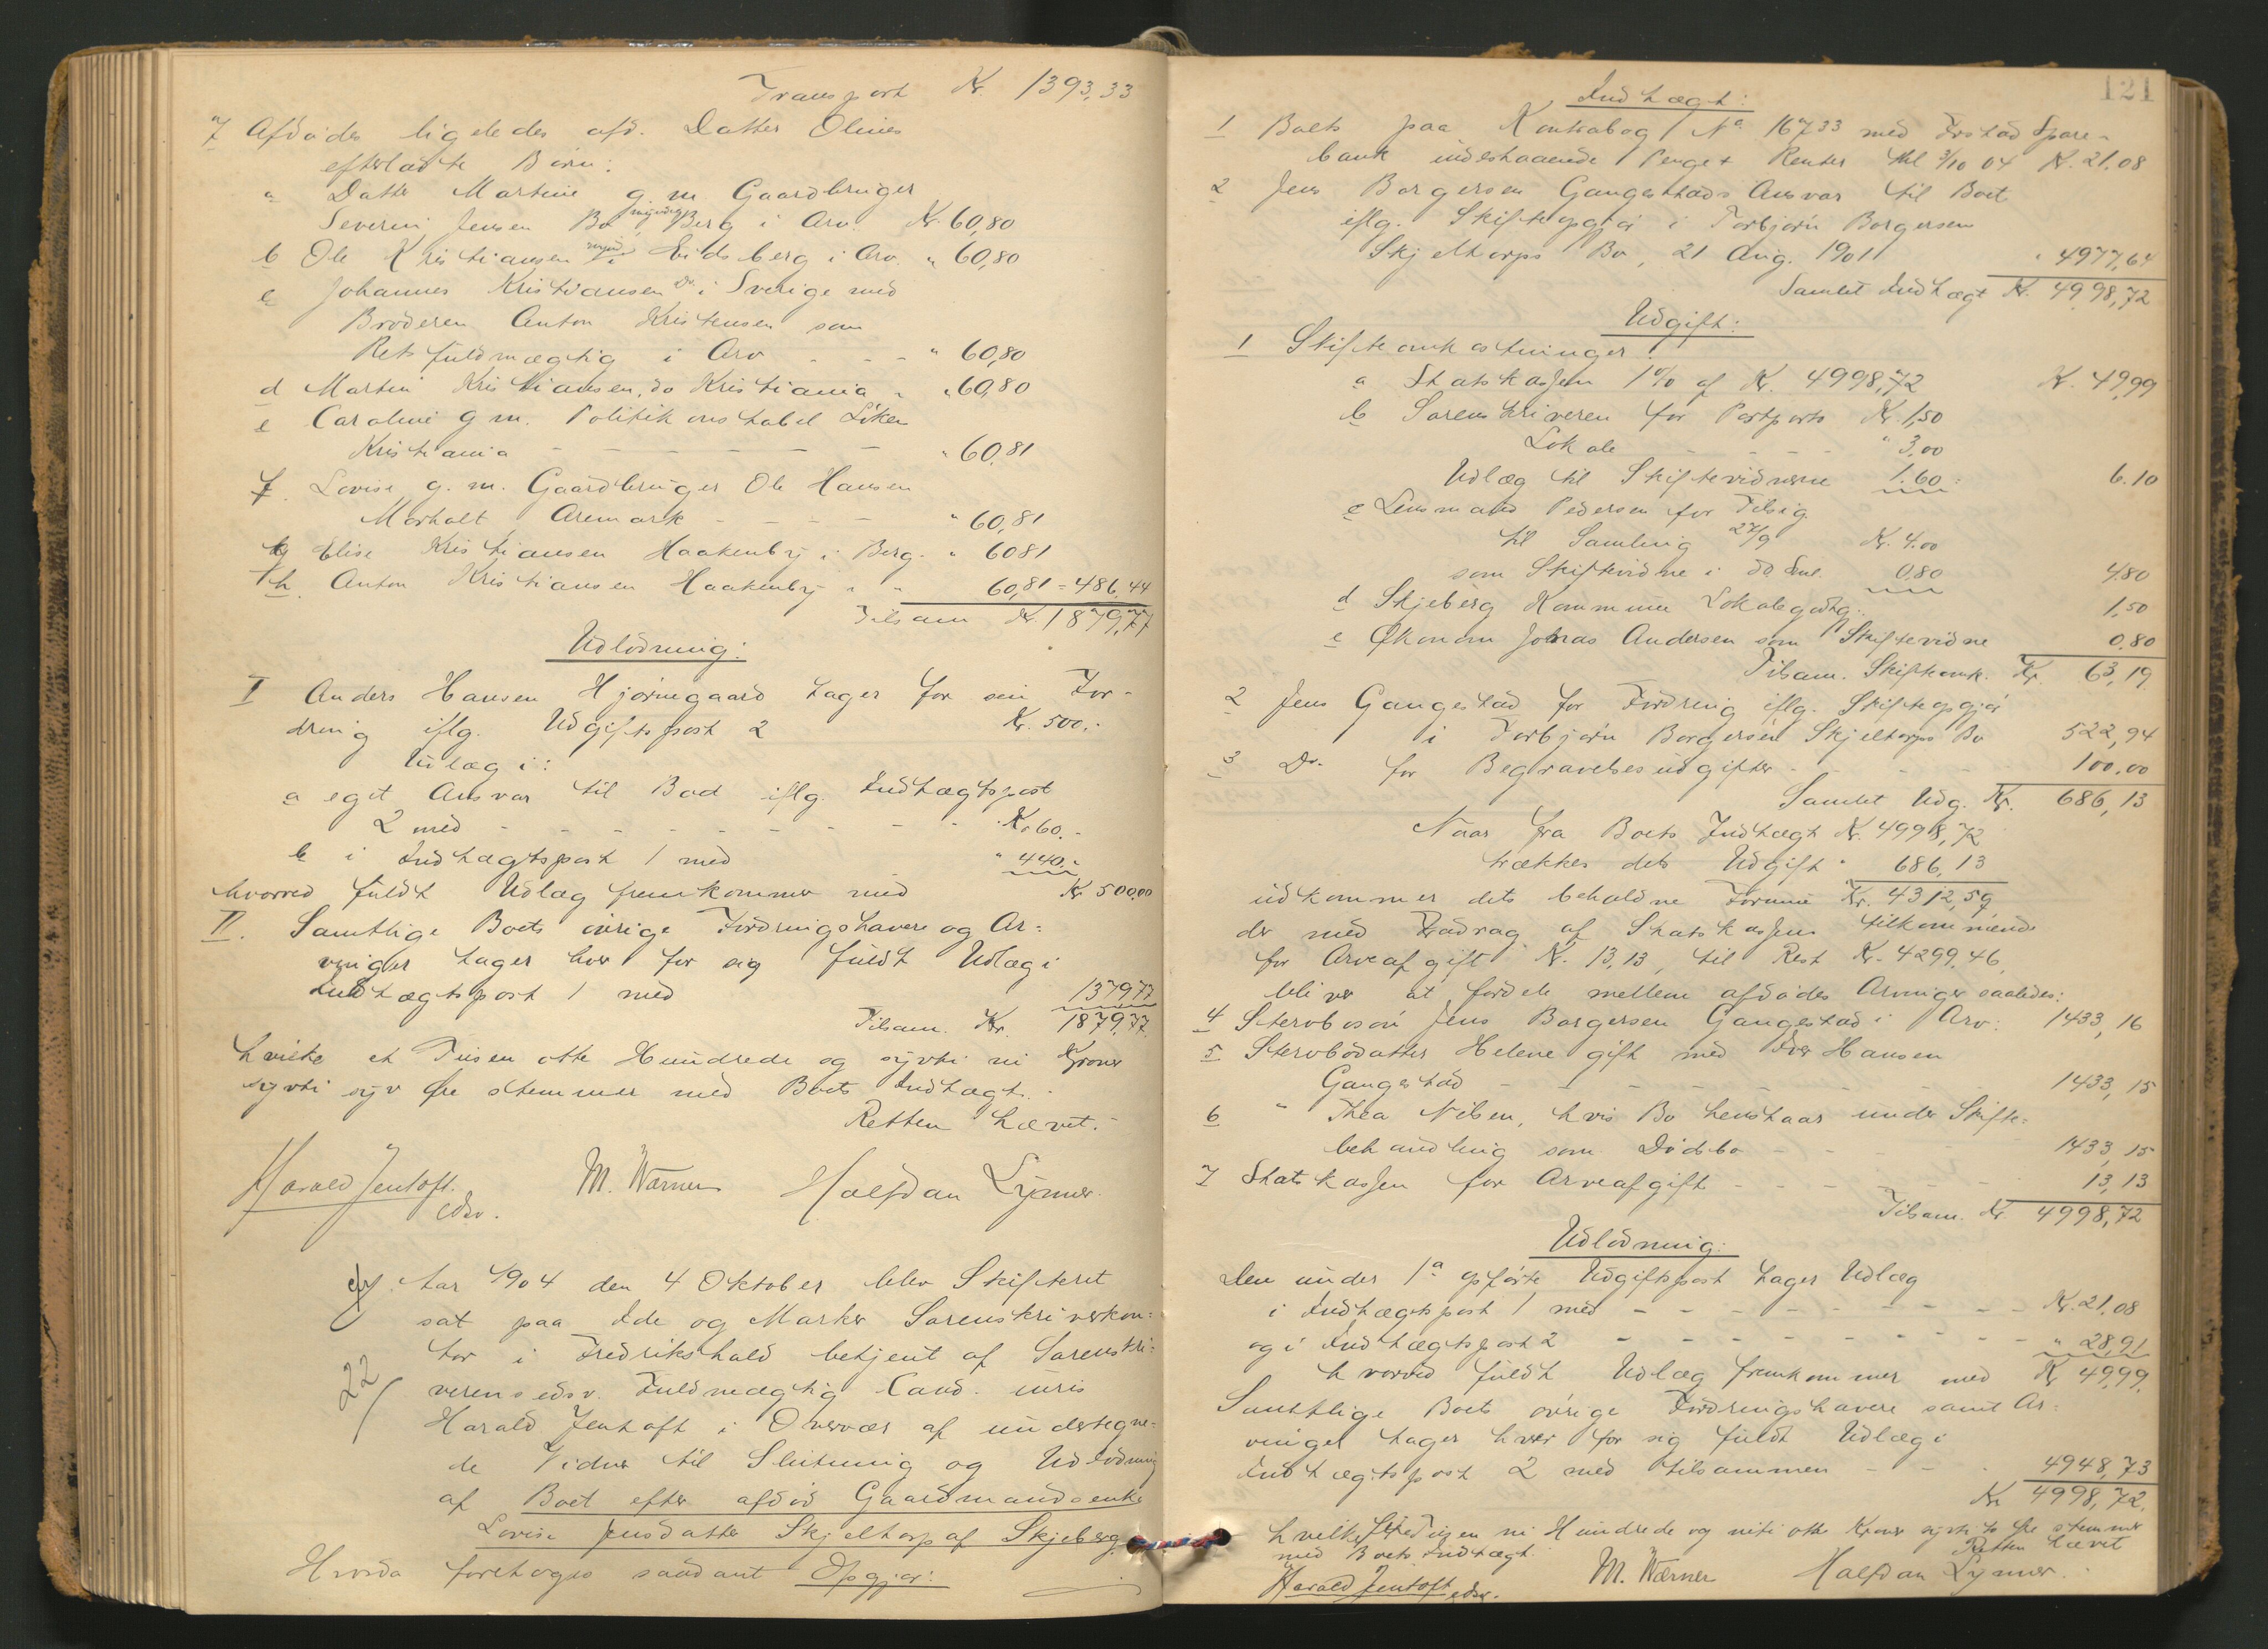 Transport Kr. 1393,33
7 Afdødes ligeledes afd. Datter Olines
efterladte Børn:
a Datter Martine g. m. Gaardbruger
Severin Jensen Bø myndig Berg i Arv. Kr. 60,80
b Ole Kristiansen Eidsberg i Arv. " 60,80
c Johannes Kristiansen Do. i Sverige med
Broderen Anton Kristensen som
Retsfuldmægtig i Arv - - - " 60,80
d Martin Kristiansen, do Kristiania " " 60,80
e Caroline g. m. Politikonstabel Löken
Kristiania - - - - - - " 60,81
f. Lovise g. m. Gaardbruger Ole Hansen
Mørholt Aremark - - - - " 60,81
g Elise Kristiansen Haakenby i Berg. " 6081
h. Anton Kristiansen Haakenby " " 60,81 = 486,44
Tilsam Kr. 1879,77
Udlodning:
I Anders Hansen Hjørnegaard tager for sin For-
dring iflg. Udgiftspost 2 Kr. 500.-
Udlæg i:
a eget Ansvar til Boet iflg. Indtægtspost
2 med - - - - - - - - - Kr. 60.-
b i Indtægtspost 1 med " 440.-
hvorved fuldt Udlæg fremkommer med Kr 500,00
II. Samtlige Boets øvrige Fordringshavere og Ar=
vinger tager hver for sig fuldt Udlæg i
Indtægtspost 1 med 1379,77
Tilsam. Kr. 1879,77.
hvilke et Tusen otte Hundrede og sytti ni Kroner
sytti syv Øre stemmer med Boets Indtægt.-
Retten hævet.-
Harald Jentoft. M. Warner Halfdan Lymer.
edsv.
Aar 1904 den 4 Oktober blev Skifteret
sat paa Idde og Marker Sorenskriverkon=
tor i Fredrikshald betjent af Sorenskri=
222
verens edsv. Fuldmægtig Cand. juris
Harald Jentoft i Overvær af undertegne=
de Vidner til Slutning og Udlodning
af Boet efter afdød Gaardmandsenke
Lovise Jensdatter Skjeltorp af Skjeberg
Hvorda foretoges saadant Opgjør:
121
Indtægt:
1 Boets paa Kontrabog No 16733 med Idstad Spare-
bank indestaaende Penge + Renter til 3/10 04 Kr. 21.08
2 Jens Borgersen Gangestads Ansvar til Boet
iflg. Skifteopgjør i Torbjørn Borgersen
Skjeltorps Bo, 21 Aug. 1901 " 4977,64
Samlet Indtægt Kr. 4998,72
Udgift:
1 Skifteomkostninger:
a Statskassen 1% af Kr. 4998,72 Kr. 49,99
b Sorenskriveren for Postporto Kr. 1,50
Lokale - - - - " 3,00
Udlæg til Skiftevidnerne 1.60 = 6.10
c Lensmand Pedersen for Tilsig.
til Samling 27/9 Kr. 4.00
som Skiftevidne i do. Saml. 0,80 4,80
d Skjeberg Kommune Lokalegodtg.: 1,50
e Økonom Johras Andersen som Skiftevidne 0,80
Tilsam. Skifteomk. Kr. 63,19
2 Jens Gangestad for Fordring iflg. Skifteopgjør
i Torbjørn Borgersen Skjeltorps Bo 522,94
3 Do. for Begravelsesudgifter - - - - 100,00
Samlet Udg. Kr. 686,13
Naar fra Boets Indtægt Kr. 4998,72
trækkes dets Udgift " 686,13
udkommer dets beholdne Formue Kr. 4312,59
der med Fradrag af Statskassens tilkommende
for Arveafgift Kr. 13,13, til Rest Kr. 4299.46,
bliver at fordele mellem afdødes Arvinger saaledes:
4 Stervbosøn Jens Borgersen Gangestad i Arv: 1433,16
5 Stervbodatter Helene gift med Iver Hansen
Gangestad - - - - - - - 1433,15
6 " Thea Nilsen, hvis Bo henstaar under Skifte=
behandling som Dødsbo - - - - 1433,15
7 Statskassen for Arveafgift - - - - - 13,13
Tilsam. Kr 4998,72
Udlodning:
Den under 1a opførte Udgiftspost tager Udlæg
i Indtægtspost 1 med - - - - - - - - Kr. 21.08
og i Indtægtspost 2 - - - - - - - - " 28,91
hvorved fuldt Udlæg fremkommer med Kr 49,99.
Samtlige Boets øvrige Fordringshavere samt Ar=
vinger tager hver for sig fuldt Udlæg i
Indtægtspost 2 med tilsammen - - - 4948,73
Kr 4998,72.
hvilke fire Tusen ni Hundrede og nitti otte Kroner sytti to Øre stemmer
med Boets Indtægt. Retten hævet
Harald Jentoft edsv. M. Warner Halfdan Lymer.